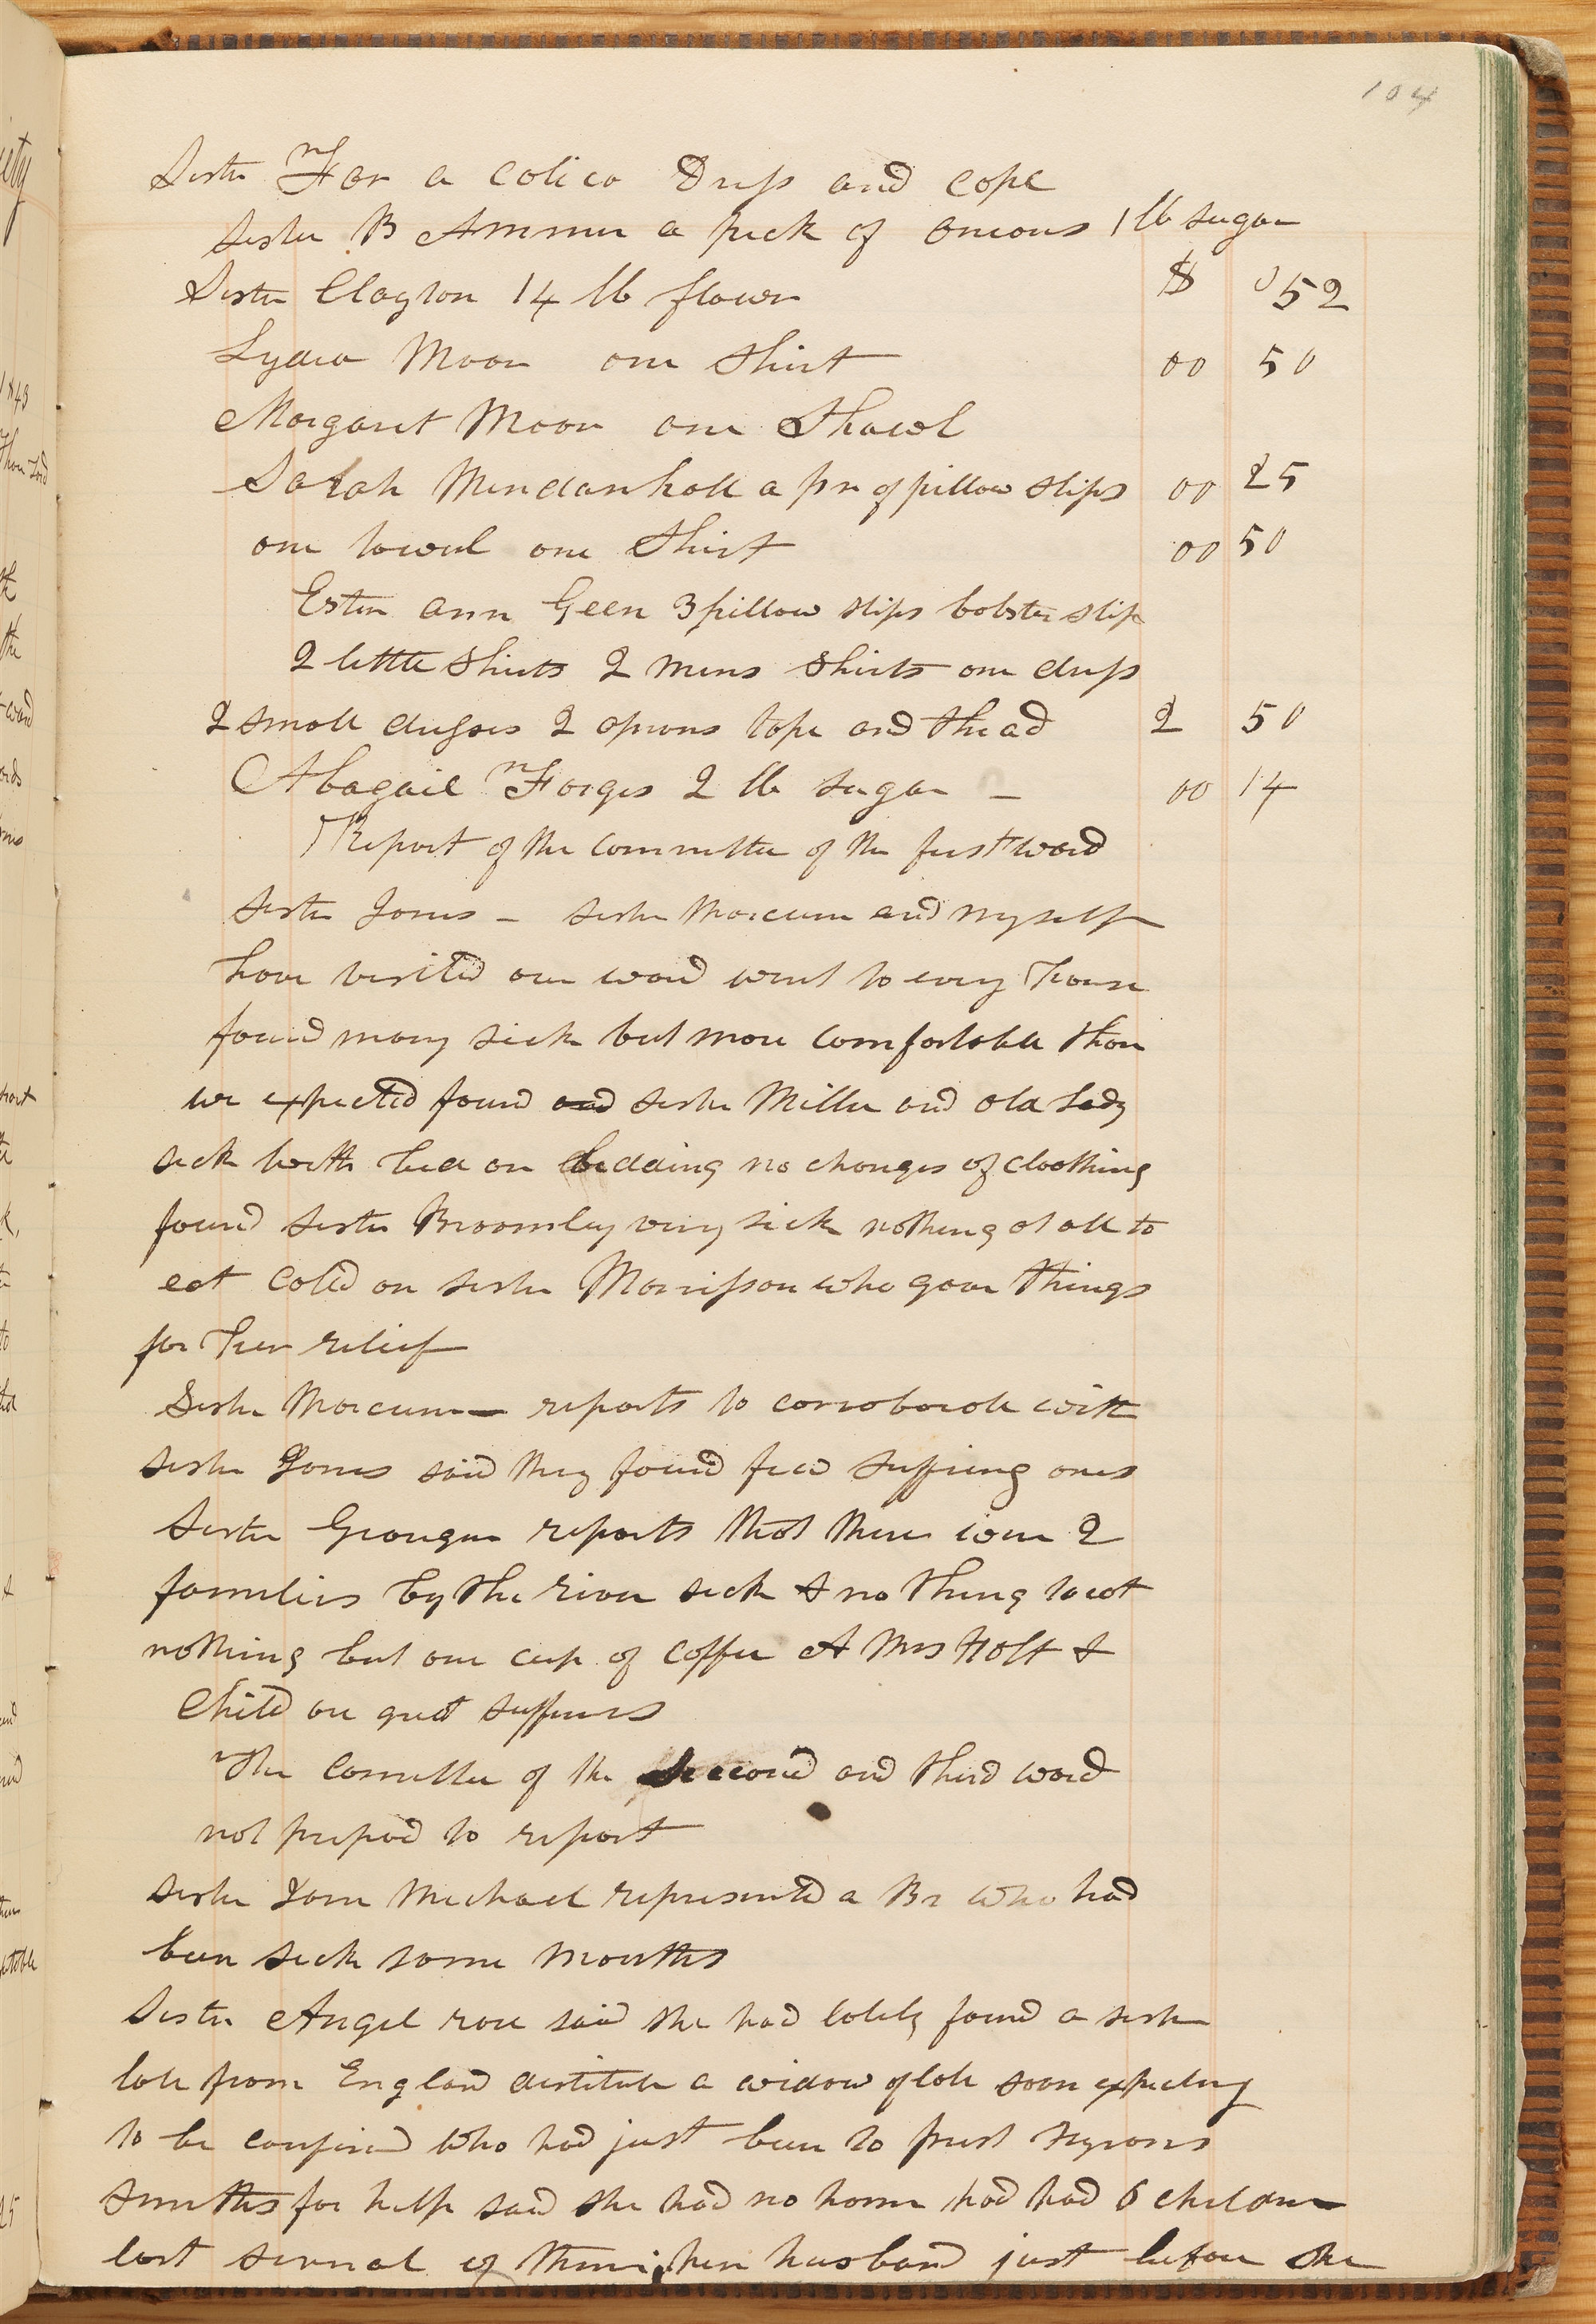 104
Sister Farr a colico Dress and cope
sister B Ammer a peck of onions 1 lb sugar
Sister Clayton 14 lb flower $ 0 52
Lydia Moon one Shirt 00 50
Margaret Moon one Shawl
Sarah Mendanhall a pr of pillow slips 00 25
one towel one Shirt 00 50
Ester ann Geen 3 pillow slips bolster slip
2 little Shirts 2 mens shirts one dress
2 small dresses 2 aprons tape and thead 2 50
Abagail Forges 2 lb sugar – 00 14
Report of the committee of the first ward
sister Jones – sister Marcum and myself
have visited our ward went to every house
found many sick but more comfortable than
we expected found and sister Miller and old Lady
sick with bed on bedding no changes of cloothing
found sister Broomley very sick nothing at all to
eat caled on sister Morrisson who gave things
for her relief
Sister Marcum – reports to corroborate with
sister Jones said they found few suffering ones
Sister Granger reports that there were 2
families by the river sick & no thing to eat
nothing but one cup of coffee A Mrs Holt &
Child are great sufferers
The Comettee of the second and third ward
not prepard to report
sister Jane Michael represented a Br who had
been sick some months
Sister Angel rose said she had lately found a sister
late from England destitute a widow of late soon expecting
to be confined who had just been to prest Hyrons
smiths for help said she had no home had had 6 children
lost several of them; her husband just before she